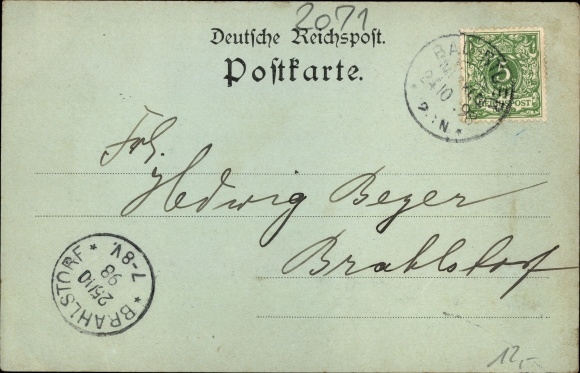 2071
Deutsche Reichspost.
Postkarte.
5
REICHSPOST
24/10 98
2-3N.
Frl.
Hedwig Beyer
Brahlstorf
BRAHLSTORF
25/10
98
7-8V.
12,-